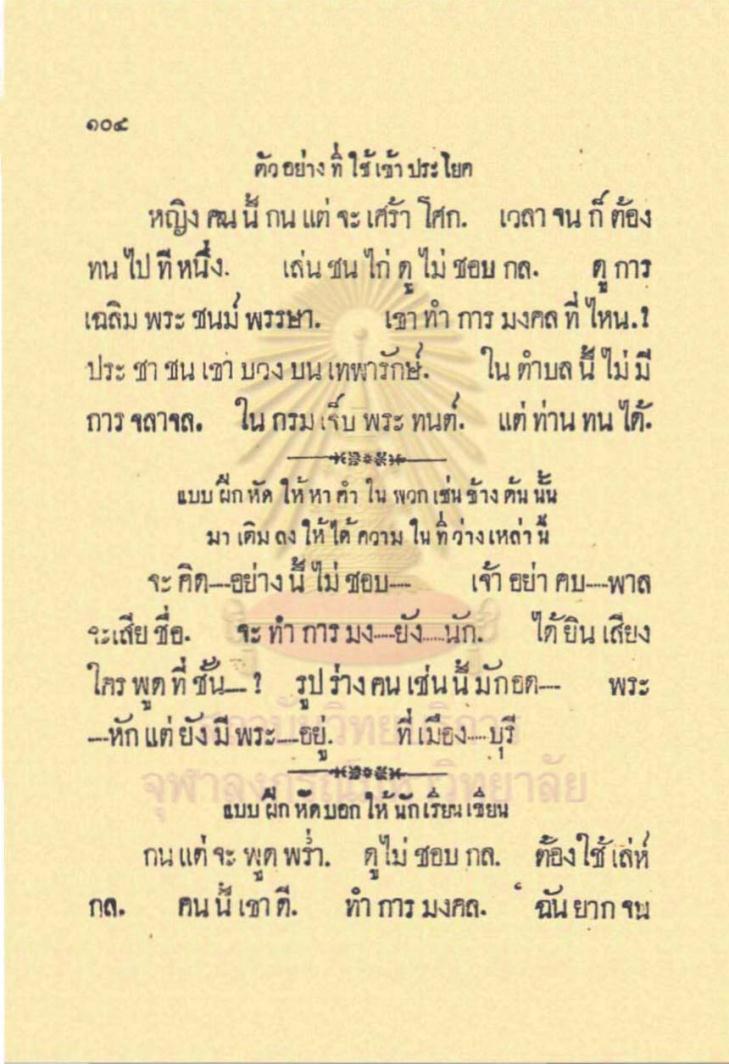 ๑๐๔
ตัว อย่าง ที่ ใช้ เข้า ประ โยค
หญิง คน นี้ กน แต่ จะ เศร้า โศก. เวลา จน ก็ ต้อง
ทน ไป ที หนึ่ง. เล่น ชน ไก่ ดู ไม่ ชอบ กล. ดู การ
เฉลิม พระ ชนม์ พรรษา. เขา ทำ การ มงคล ที่ ไหน.?
ประ ชา ชน เขา บวง บน เทพารักษ์. ใน ตำบล นี้ ไม่ มี
การ จลาจล. ใน กรม เจ็บ พระ ทนต์. แต่ ท่าน ทน ได้.
แบบ ฝึก หัด ให้ หา คำ ใน พวก เช่น ข้าง ต้น นั้น
มา เติม ลง ให้ ได้ ความ ใน ที่ ว่าง เหล่า นี้
จะ คิด---อย่าง นี้ ไม่ ชอบ---- เจ้า อย่า คบ----พาล
จะเสีย ชื่อ. จะ ทำ การ มง----ยัง.....นัก. ได้ ยิน เสียง
ใคร พูด ที่ ชั้น---? รูป ร่าง คน เช่น นี้ มักอด--- พระ
---หัก แต่ ยัง มี พระ---อยู่. ที่ เมือง----บุรี
แบบ ฝึก หัด บอก ให้ นัก เรียน เขียน
กน แต่ จะ พูด พร่ำ. ดู ไม่ ชอบ กล. ต้อง ใช้ เล่ห์
กล. คน นี้ เขา ดี. ทำ การ มงคล. ฉัน ยาก จน
สถาบันวิทยบริการ
จุฬาลงกรณ์มหาวิทยาลัย